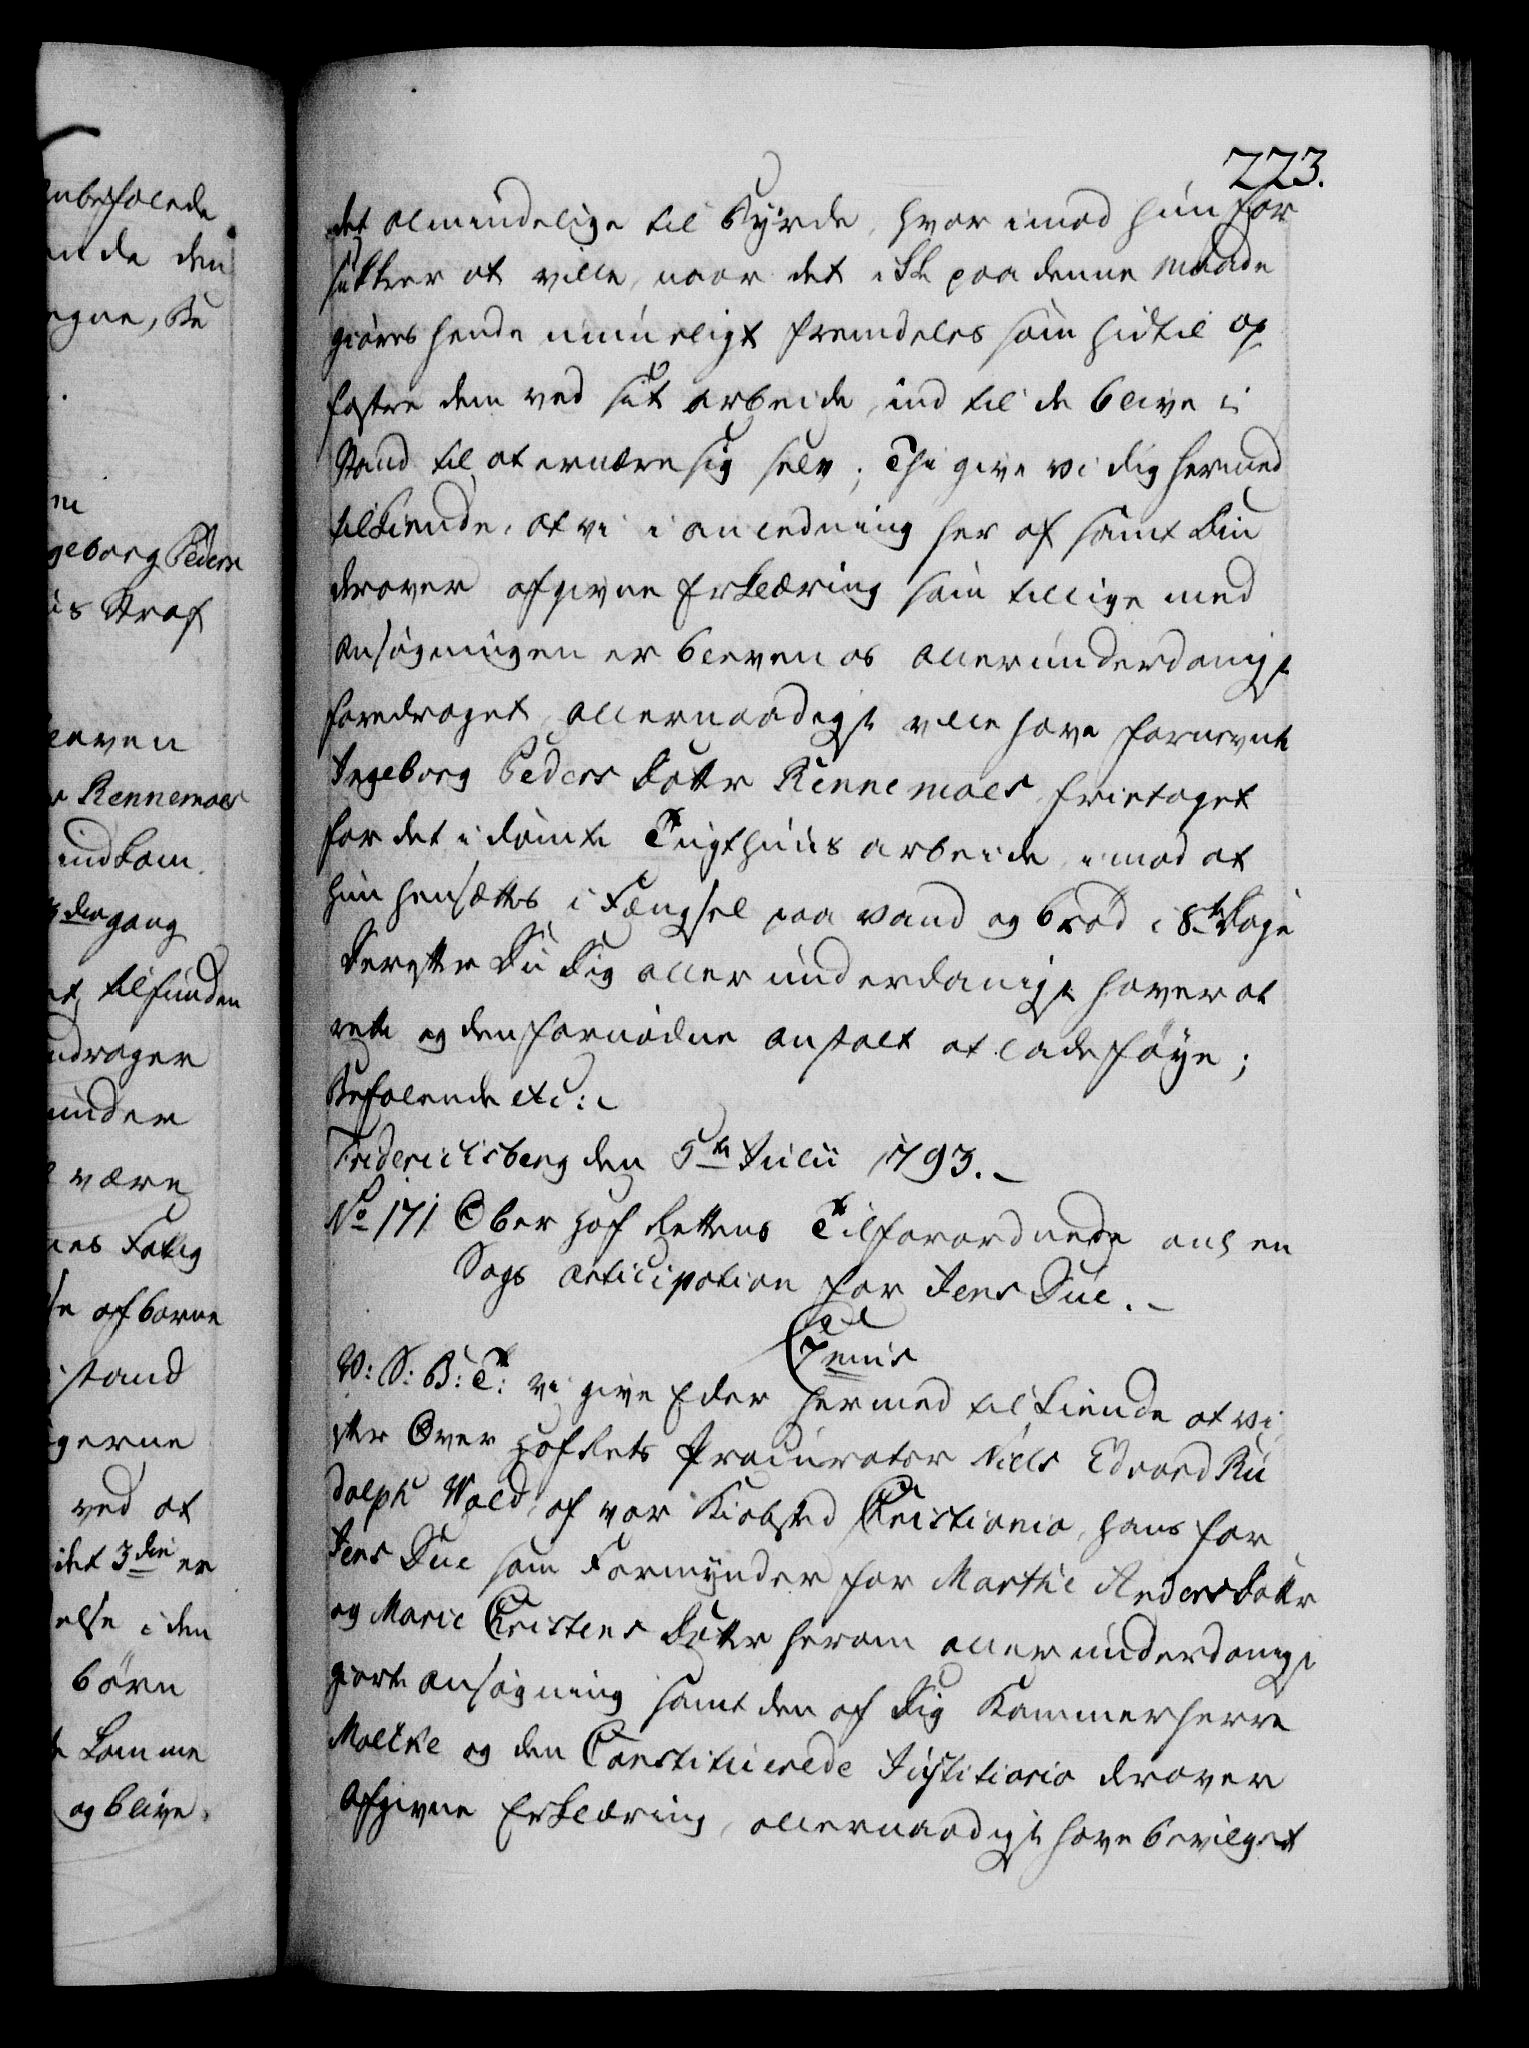 223.
det almindelige til Byrde, hvorimod hun for
sikkrer at ville, naar det ikke paa denne maade
giøres hende umueligt fremdeles som hidtil op
fostre dem ved sit arbeide, ind til de blive i
Stand til at ernære sig selv; Thi give vi dig hermed
tilkiende, at vi i anledning her af samt Din
drover afgivne Erklæring som tillige med
ansøgningen er bleven os allerunderdanigst
foredraget, allernaadigst ville have fornevnte
Ingeborg Peders Dottr Rennemoes fritaget
for det idømte Tugthuus arbeide, imod at
hun hensættes i Fængsel paa vand og brød i 8te Dage
Derefter Du Dig aller underdanigst haver at
rette og den fornødne anstalt at lade føye;
Befalende etc:
Friderichsberg den 5te Julii 1793.
No 171 Ober Hof Rettens Tilforordnede anl en
Sags anticipation for Jens Due.
Gemis
W: S: B: T: vi give Eder hermed tilkiende at vi
efter Over Hof Rets Procurator Niels Edvard Ru
dolph Wold, af vor Kiøbsted Christiania, hans for
Jens Due som Formynder for Marthe Anders Dottr
og Marie Christens Dottr herom aller underdanigst
giorte ansøgning samt den af Dig Kammerherre
Moltke og den Constituerede Justitiario drover
Afgivne Erklæring, allernaadigst have bevilget
anbefalede
den
egne, Be
geborg Peders
Straf
bleven
Rennemoes
indkom
3die gang
tilfunden
ndrager
under
være
Fattig
af børne
istand
gerne
ved at
det 3die er
else i den
børn
komme
og blive